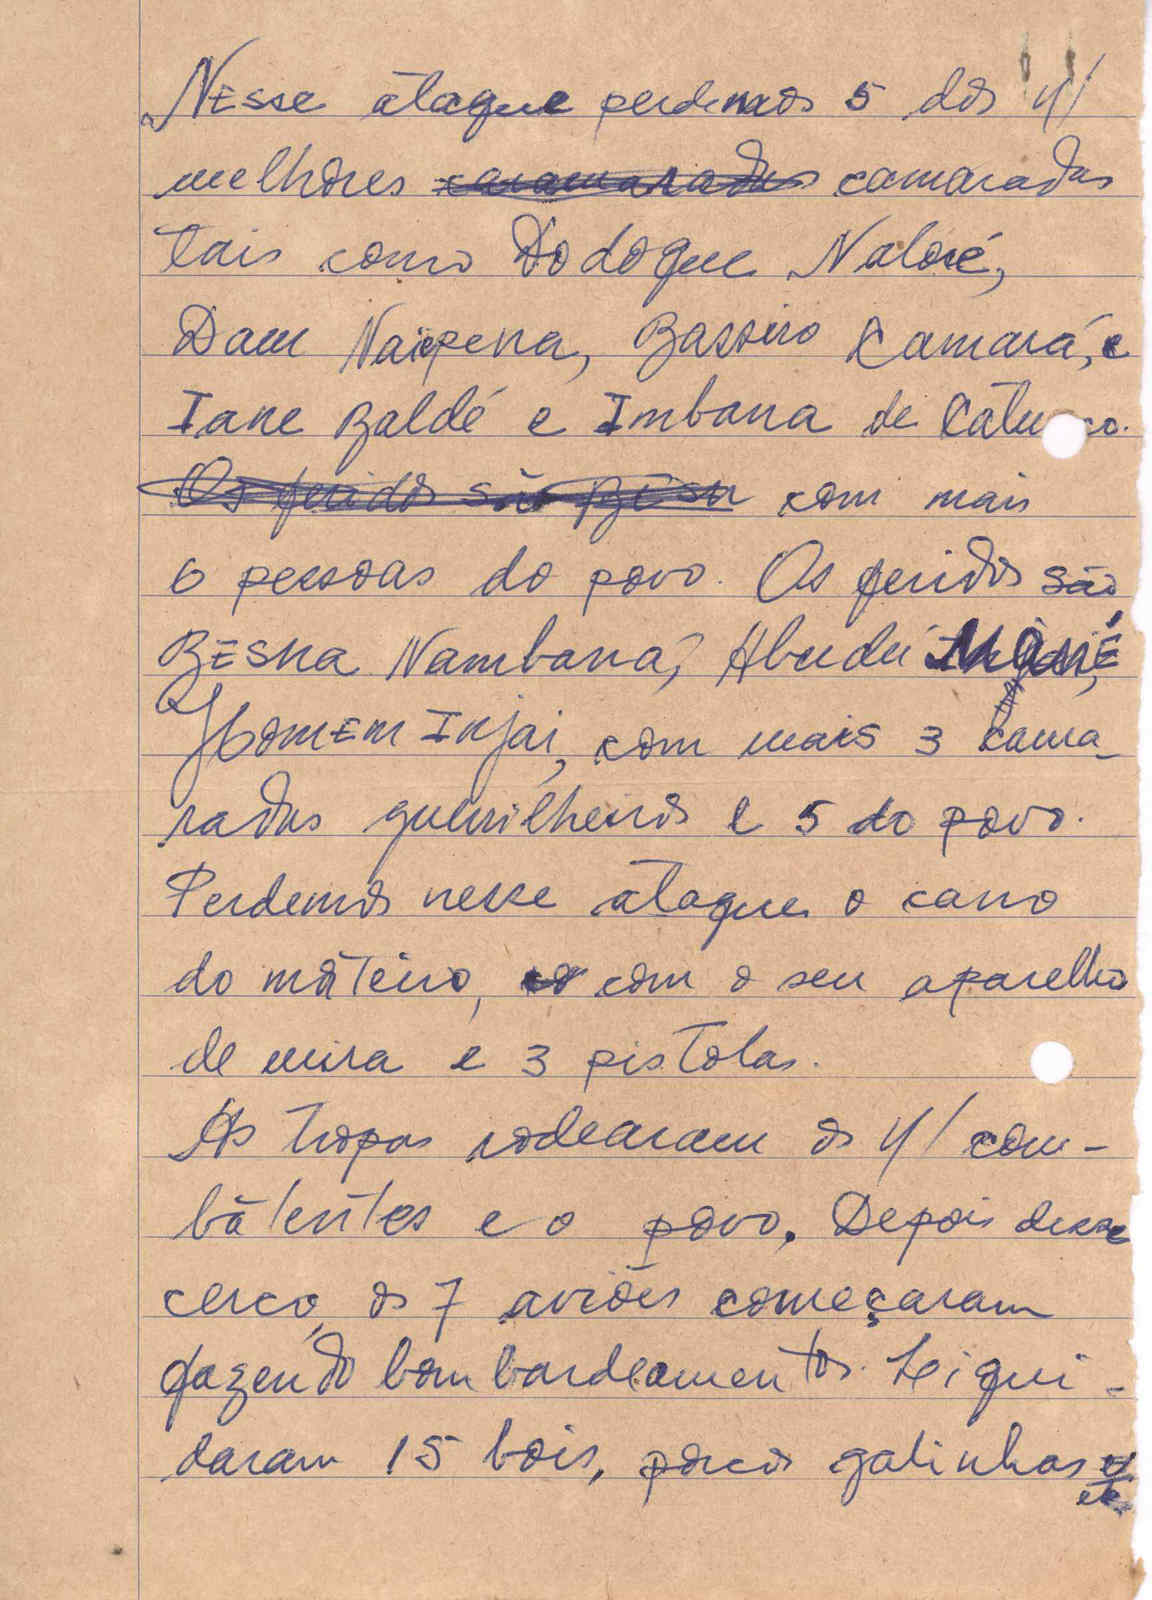 Nesse ataque perdemos 5 dos n/
melhores camaradas
tais como Dodogue Naloré,
Dam Naipena, Bassiro Camará, e
Iane Baldé e Imbana de
Os feridos são com mais
6 pessoas do povo. Os feridos são
BESNA Nambana, Abudú
Homem Injai, com mais 3 cama-
radas guerrilheiros e 5 do povo.
Perdemos nesse ataque o carro
do morteiro, com o seu aparelho
de mira e 3 pistolas.
As tropas rodearam os n/ com-
batentes e o povo. Depois desse
cerco, os 7 aviões começaram
fazendo bombardeamentos. Liqui-
daram 15 bois, porcos galinhas
etc.